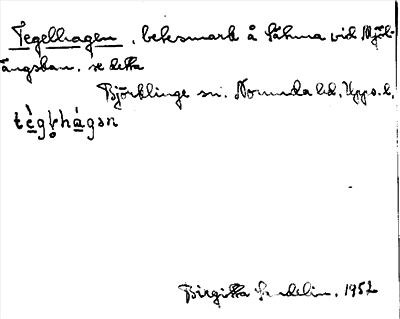 Tegelhagen, betesmark å Såhma vid Mjöl-
ängsban, se detta
Björklinge sn. Norunda hd, Upps.l,
tè̱gḷhá̱gən
Birgitta Sundelin. 1952